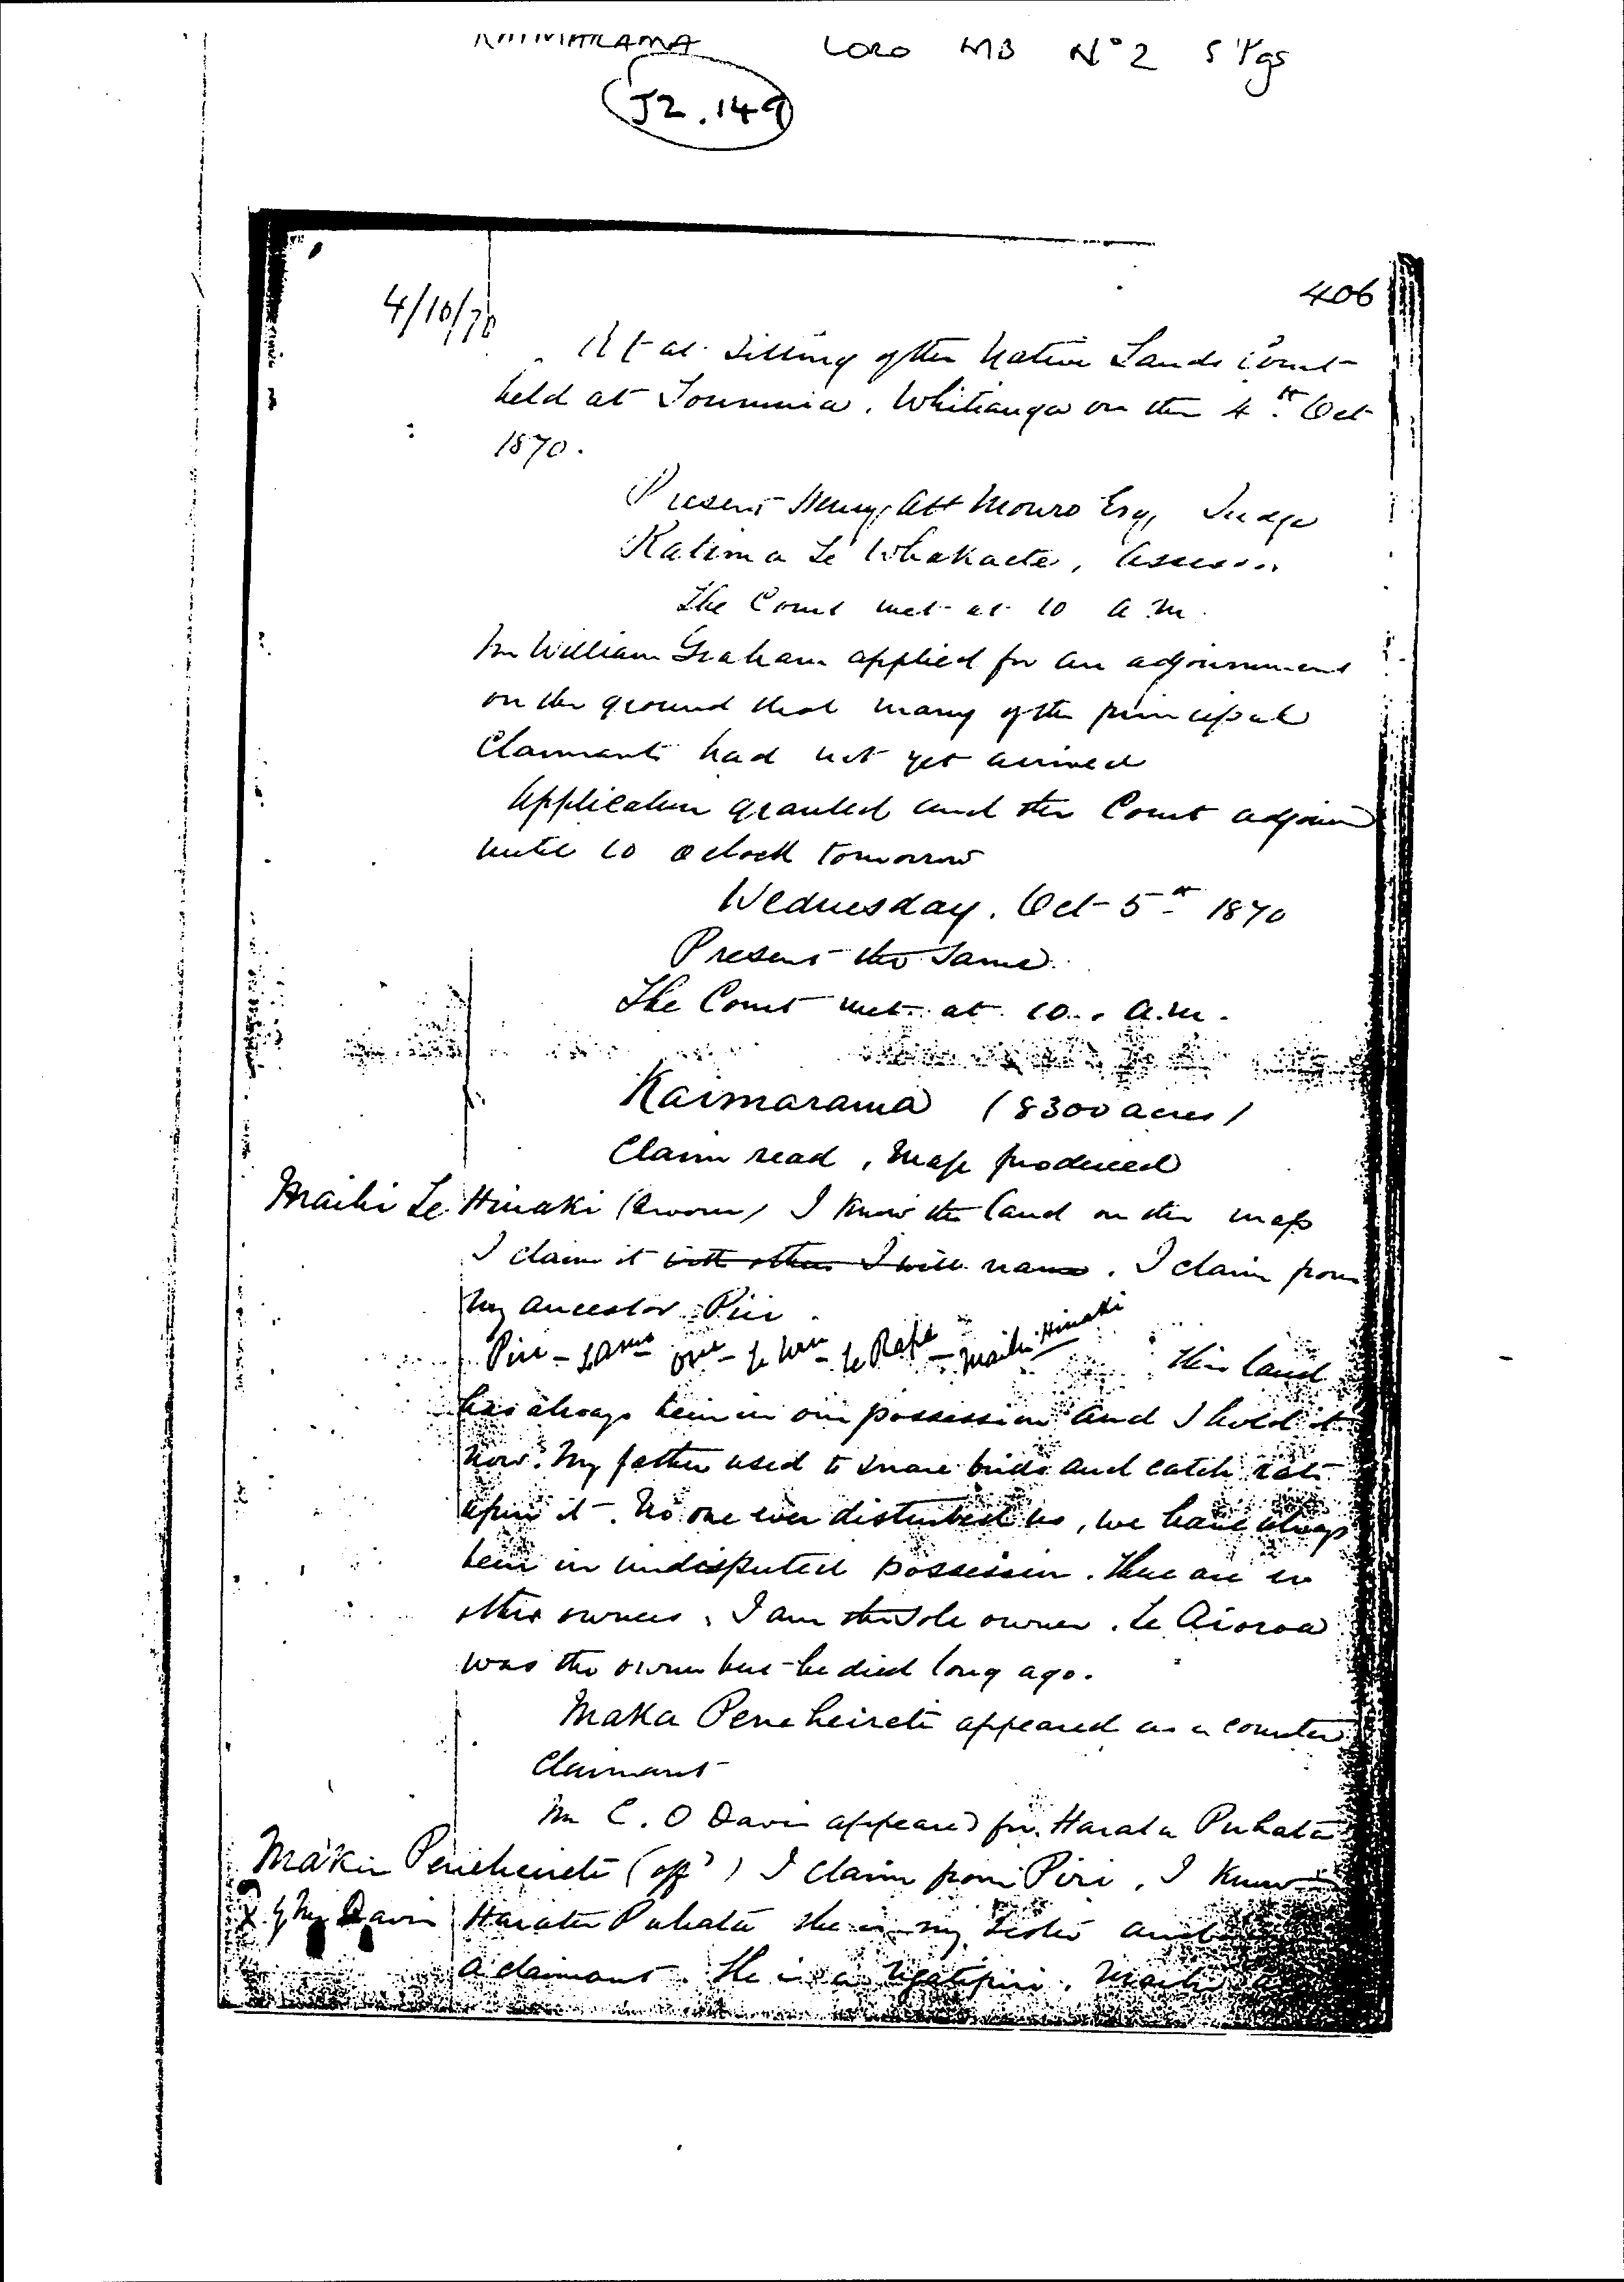 KAIMARAMA CORO MB No 2 5 Pgs
J2.149
406
4/10/70
At a sitting of the Native Lands Court
held at , Whitianga on the 4th Oct
1870.
Present Monro Esq Judge
Te Whakaete, Assessor
The Court met at 10 a.m.
Mr William Graham applied for an adjournment
on the ground that many of the principal
Claimants had not yet arrived
Application granted and the Court adjourned
until 10 oclock tomorrow
Wednesday. Oct 5th 1870
Present the same.
The Court met at 10. a.m.
Kaimarama (8300 acres)
Claim read, Map produced
Maihi Te Hinaki (Sworn) I know the land on the map
I claim it with others I will name. I claim from
my ancestor Piri.
Piri - - - - Te Rapa - Maihi Hinaki
This land
has always been in our possession and I hold it
now. My father used to snare birds and catch rats
upon it. No one ever disturbed us, we have always
been in undisputed possession. There are no
other owners. I am the sole owner. Te Aioroa
was the owner but he died long ago.
Maka Peneheireti appeared as a counter
claimant
Mr C. O Davis appeared for Harata Puhata
Maka Peneheireti (affd) I claim from Piri. I know
X by Mr Davis Harata Puhata she is my sister and
a claimant. She is a Ngatipiri.